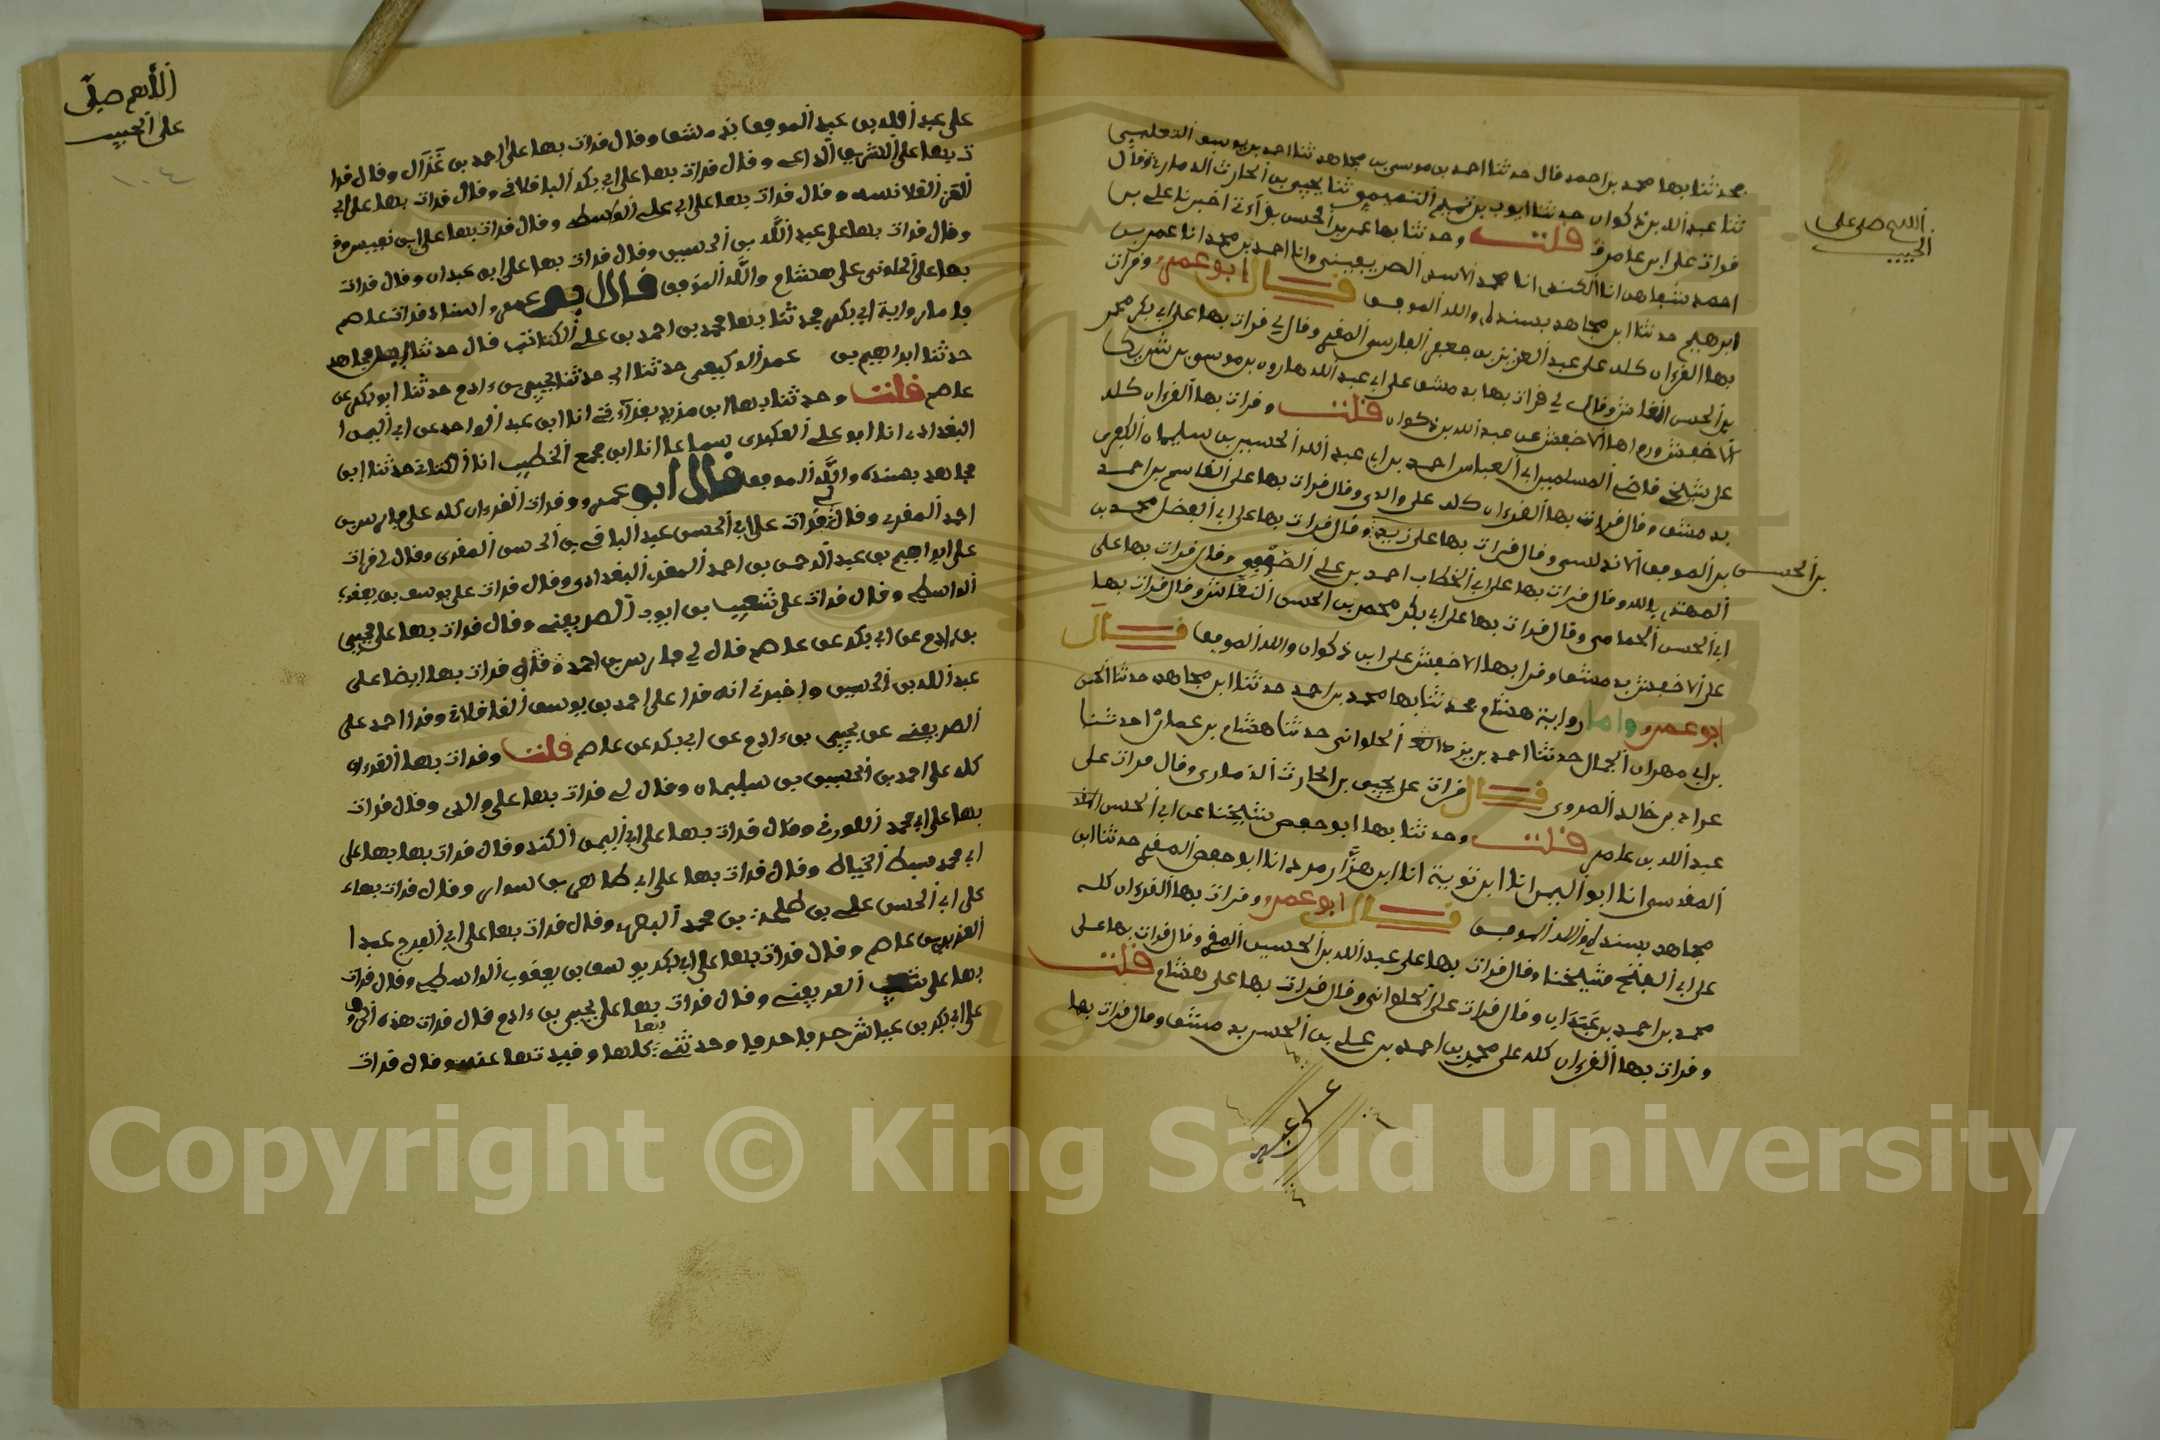 اللهم صل على
الحبيب
فحدثنا بها محمد بن احمد قال حدثنا احمد بن موسى بن مجاهد ثنا احمد بن يوسف التغلبي
ثنا عبد الله بن ذكوان حدثنا ايوب بن تميم التميمي ثنا يحيى بن الحارث الذماري وقال
قرات على ابن عامر قلت وحدثنا بها عمر بن الحسن بقراءتي اخبرنا علي بن
احمد انا الكندي انا محمد الاسدي الصريفيني وانا احمد بن محمد انا عمر بن
ابرهيم حدثنا ابن مجاهد بسنده والله الموفق قال ابو عمرو وقرات
بها القرءان كله على عبد العزيز بن جعفر الفارسي المقرئ وقال لي قرات بها على ابي بكر محمد
بن الحسن النقاش وقال لي قرات بها بدمشق على ابي عبد الله هارون بن موسى بن شريك
الاخفش ورواها الاخفش عن عبد الله بن ذكوان قلت وقرات بها القرءان كله
على شيخي قاضي المسلمين ابي العباس احمد بن ابي عبد الله الحسين بن سليمان الكفري
بدمشق وقال قرات بها القرءان كله على والدي وقال قرات بها على القاسم بن احمد
بن الموفق الاندلسي وقال قرات بها على زيد وقال قرات بها على ابي الفضل محمد بن
بن الحسن
المهتدي بالله وقال قرات بها على ابي الخطاب احمد بن علي الصوفي وقال قرات بها على
ابي الحسن الحمامي وقال قرات بها على ابي بكر محمد بن الحسن النقاش وقال قرات بها
على الاخفش بدمشق وقرا بها الاخفش على ابن ذكوان والله الموفق قال
ابو عمرو واما رواية هشام فحدثنا بها محمد بن احمد حدثنا ابن مجاهد حدثنا الحسن
بن ابي مهران الجمال حدثنا احمد بن يزيد الحلواني حدثنا هشام بن عمار حدثنا
عراك بن خالد المروي قال قرات على يحيى بن الحارث الذماري وقال قرات على
عبد الله بن عامر قلت وحدثنا بها ابو حفص شيخنا عن ابي الحسن
المقدسي انا ابو اليمن انا ابن توبة انا ابن هزارمرد انا ابو حفص المقرئ حدثنا ابن
مجاهد بسنده والله الموفق قال ابو عمرو وقرات بها القرءان كله
على ابي الفتح شيخنا وقال قرات بها على عبد الله بن الحسين المقرئ وقال قرات بها على
محمد بن احمد بن عبدان وقال قرات على الحلواني وقال قرات بها على هشام قلت
وقرات بها القرءان كله على محمد بن احمد بن علي بن الحسن بدمشق وقال قرات بها
على عبد
اللهم صلي
على الحبيب
١٠٤
على عبد الله بن عبد الموفق بدمشق وقال قرات بها على احمد بن غزال وقال قرا
ت بها على الشريف الداعي وقال قرات بها على ابي بكر الباقلاني وقال قرات بها على ابي
العز القلانسي وقال قرات بها على ابي علي الواسطي وقال قرات بها على ابن نفيس
وقال قرات بها على عبد الله بن الحسين وقال قرات بها على ابن عبدان وقال قرات
بها على الحلوني على هشام والله الموفق قال ابو عمرو اسناد قراة عاصم
فاما رواية ابي بكر فحدثنا بها محمد بن احمد بن علي الكتاتب قال حدثنا ابن مجاهد
حدثنا ابراهيم بن عمر الوكيعي حدثنا ابي حدثنا يحيى بن ءادم حدثنا ابو بكر عن
عاصم قلت وحدثنا بها ابن مزيد بقراءتي انا ابن عبد الواحد عن ابي اليمن
البغدادي انا ابو علي العكبري سماعا انا ابن مجمع الخطيب انا الكتاني حدثنا ابن
مجاهد بسنده والله الموفق قال ابو عمرو وقرات القرءان كله على فارس بن
احمد المقرئ وقال لي قرات على ابي الحسن عبد الباقي بن الحسن المقرئ وقال لي قرات
على ابراهيم بن عبد الرحمن بن احمد المقرئ البغدادي وقال قرات على يوسف بن يعقوب
الواسطي وقال قرات على شعيب بن ايوب الصريفيني وقال قرات بها على يحيى
بن ءادم عن ابي بكر عن عاصم قال لي فارس بن احمد وقال قرات بها ايضا على
عبد الله بن الحسين واخبرني انه قرا على احمد بن يوسف القافلاني وقرا احمد على
الصريفيني عن يحيى بن ءادم عن ابي بكر عن عاصم قلت وقرات بها القرءان
كله على احمد بن الحسين بن سليمان وقال لي قرات بها على والدي وقال قرات
بها على ابي محمد اللورقي وقال قرات بها على ابي اليمن الكندي وقال قرات بها بها على
ابي محمد سبط الخياط وقال قرات بها على ابي طاهر بن سوار وقال قرات بها
على ابي الحسن علي بن طلحة بن محمد البصري وقال قرات بها على ابي الفرج عبد ا
لعزيز بن عاصم وقال قرات بها على ابي بكر يوسف بن يعقوب الواسطي وقال قرات
بها على شعيب الصريفيني وقال قرات بها على يحيى بن ءادم قال قرات هذه الحروف
على ابي بكر بن عياش حرفا حرفا وحدثني بها كلها وقيدتها عنه وقال قرات